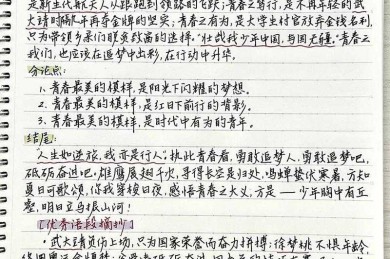 是新生代航天人从跟跑到领跑的飞跃;青春之笃行,是不再年轻的武
大靖时隔X年再夺金牌的坚实;青春之有为,是大学生村官放弃金钱名利,
只为带领乡亲们脱贫致富的精诚。“壮哉我少年中国,与国无疆。”青春之
我们,也应该在追梦中出彩,在行动中升华。
分论点:
1.青春最美的模样,是阳光下闪耀的梦想。
2.青春最美的模样,是红日下前行的背影。
3.青春最美的模样,是时代中有为的青年。
结尾:
“人生如逆旅,我亦是行人”;执此青春眉,勇敢追梦人,勇敢追梦吧,
砥砺奋进吧,雄鹰展翅千次,寻得长空是归处,鸣蝉蛰伏寒暑,方知
夏日可歌颂,你我穿梭日夜,感悟青春之大义,方是——少年胸中有丘
壑,明日立马振山河!
【优秀语段摘抄】
·武大靖负伤上场,只为国家荣誉而奋力拼搏;徐梦桃不惧年龄